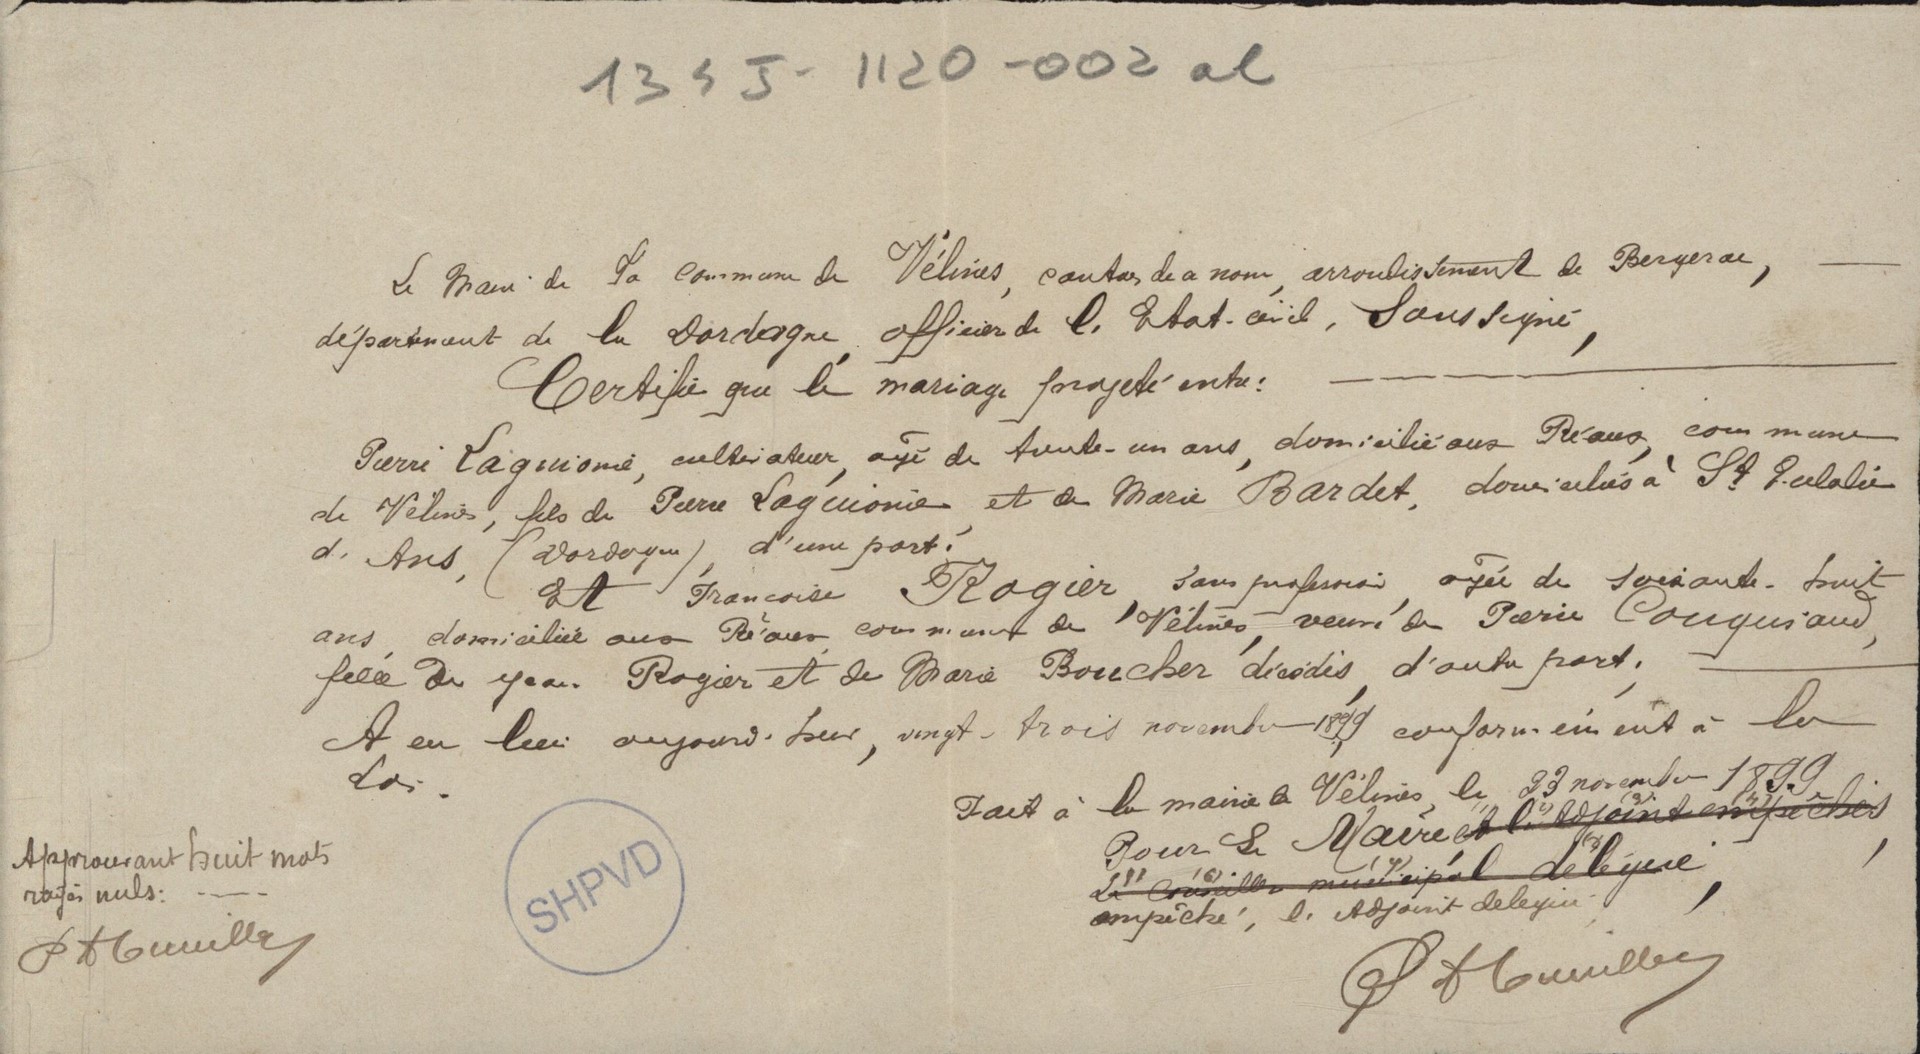 134 J - 1120 - 002 al
Le Maire de La Commune de Vélines, canton de ce nom, arrondissement de Bergerac,
département de la Dordogne, officier de l'Etat-civil, Soussigné,
Certifie que le mariage projeté entre:
Pierre Laguionie, cultivateur, âgé de trente-un ans, domicilié aux Réaux, commune
de Vélines, fils de Pierre Laguionie et de Marie Bardet, domiciliés à St Eulalie
d'Ans, (Dordogne), d'une part.
Et Françoise Rogier, sans profession, âgée de soixante-huit
ans, domiciliée aux Réaux, commune de Vélines, veuve de Pierre Couquiaud,
fille de Jean Rogier et de Marie Boucher, décédés, d'autre part.
A eu lieu aujourd'hui, vingt-trois novembre 1899, conformément à la
Loi.
Fait à la mairie de Vélines, le 23 novembre 1899
Pour Le Maire et l'Adjoint empêchés,
Le Conseiller municipal délégué,
empêché, l'Adjoint délégué
Approuvant huit mots
rayés nuls:
SHPVD